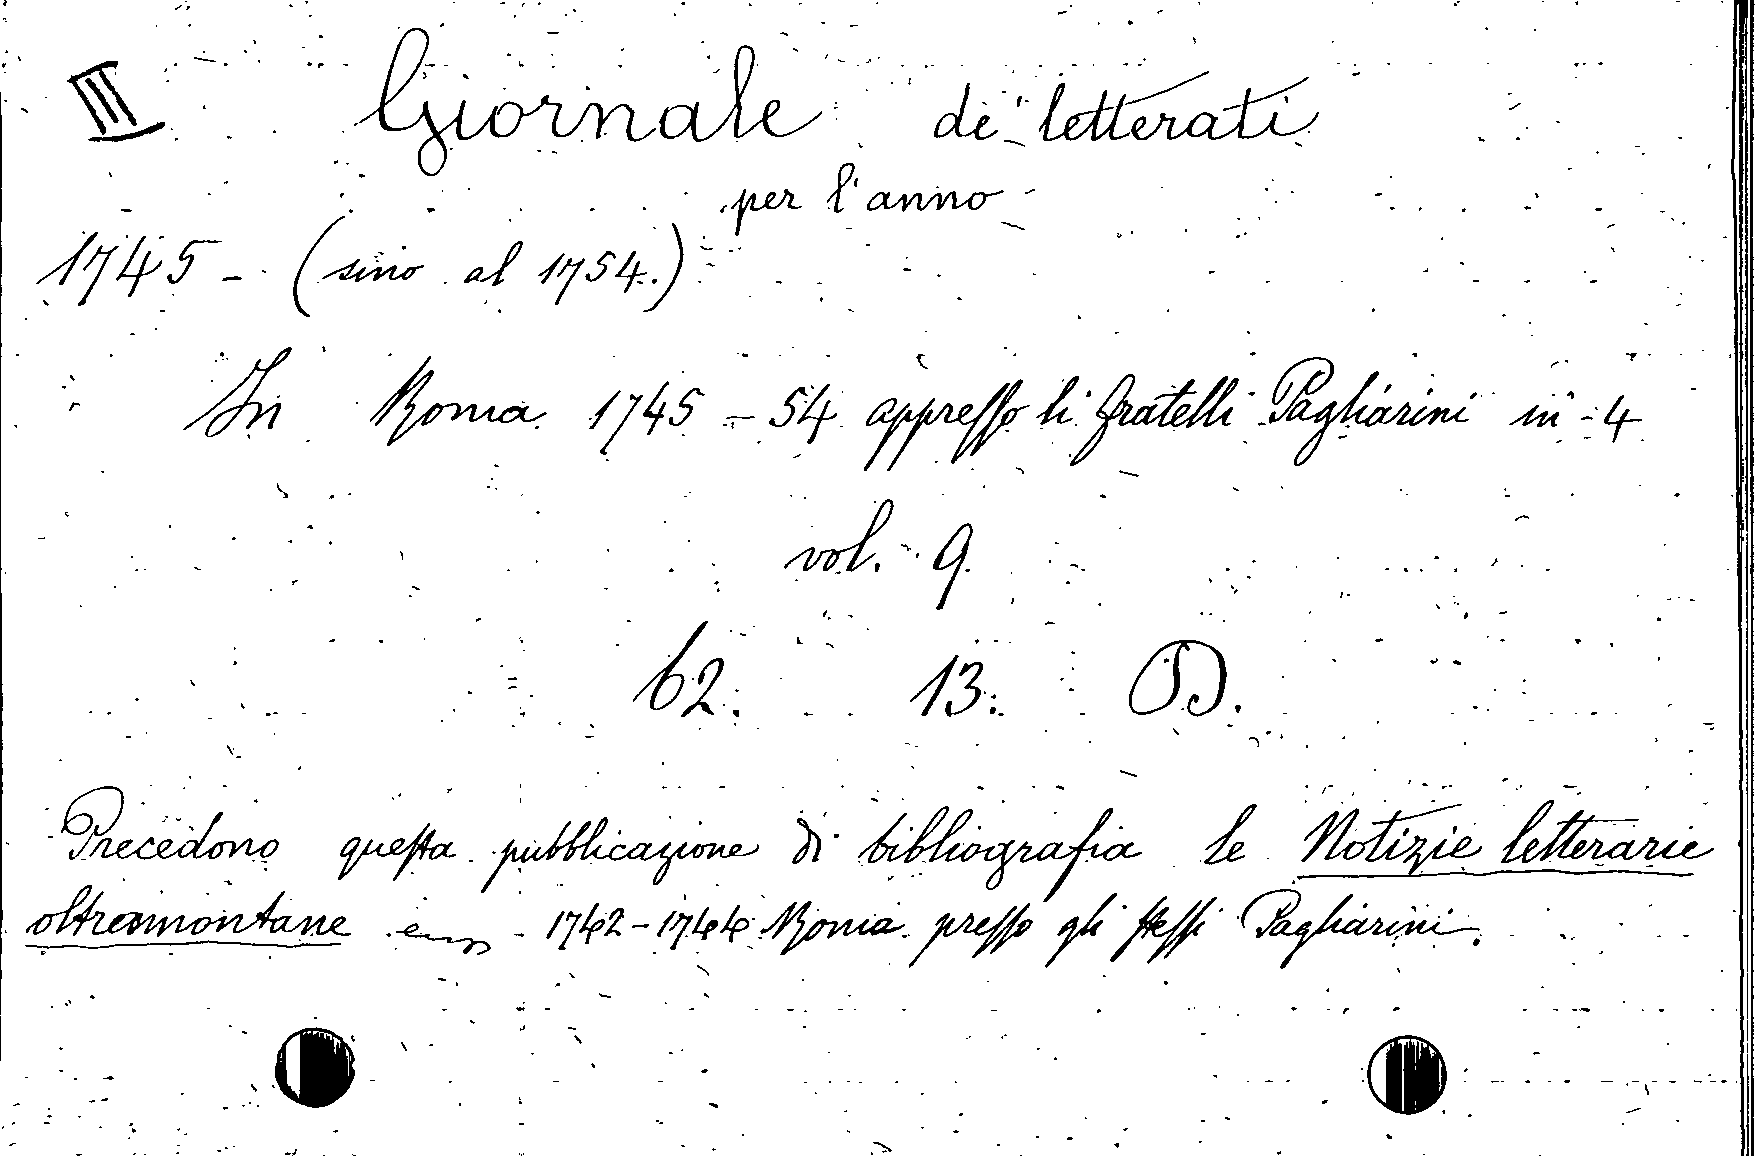 III Giornale de' letterati
per l'anno
1745 - (sino al 1754.)
In Roma 1745 - 54 appresso li fratelli Pagliarini in - 4
vol. 9
62. 13. D.
Precedono questa pubblicazione di bibliografia le Notizie letterarie
oltramontane - 1742 - 1744 Roma presso gli stessi Pagliarini.